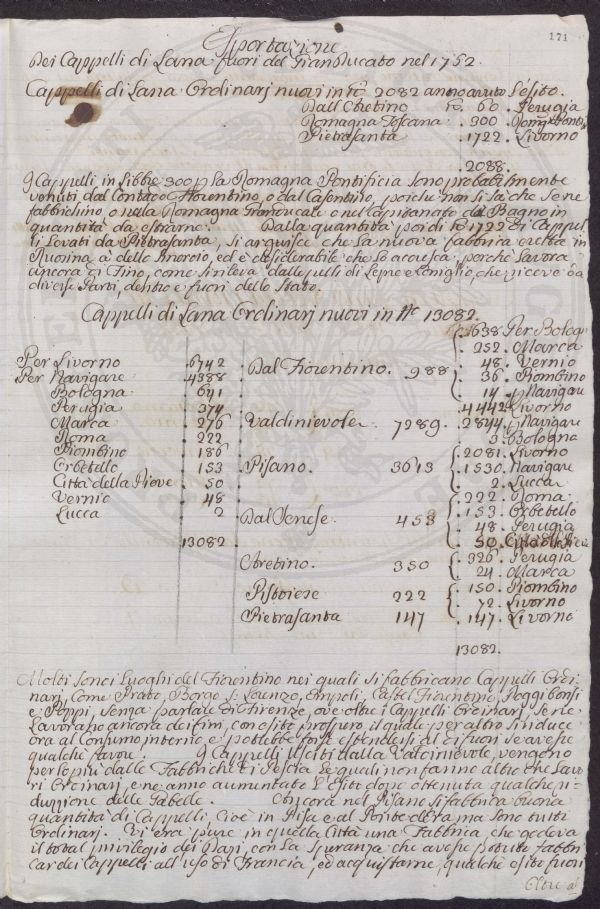 171
Esportazione
Dei Cappelli di Lana fuori del GranDucato nel 1752.
Cappelli di Lana Ordinarj nuovi in 2082 anno avuto l'esito.
Dall'Aretino 60. Perugia
Romagna Toscana 300 Pontif.
Pietrasanta 1722. Livorno
2088.
I Cappelli in Libbre 300 p la Romagna Pontificia sono probabilmente
venuti dal Contado Fiorentino, o dal Casentino, poiche non si sà che se ne
fabbrichino o nella Romagna Granducale o nel Capitanato di Bagno in
quantità da estrarne. Dalla quantità poi di 1722 di Cappel-
li Levati da Pietrasanta, si arguisce che la nuova fabbrica eretta in
Ruosina à dello smercio, ed è desiderabile che lo accresca, perche Lavora
ancora di Fino, come si rileva dalle pelli di Lepre e Coniglio, che riceve da
diverse Parti, dentro e fuori dello Stato.
Cappelli di Lana Ordinarj nuovi in N.º 13082.
Per Livorno 6742
Per Navigare 4388
Bologna 641
Perugia 374
Marca 276
Roma 222
Piombino 186
Orbetello 153
Città della Pieve 50
Vernio 48
Lucca 2
13082.
Dal Fiorentino. 988
638 Per Bologna
252. Marca
48. Vernio
36. Piombino
14. p Navigare
Valdinievole 7289.
4442 Livorno
2844. p Navigare
3. Bologna
Pisano. 3613
2081. Livorno
1530. Navigare
2. Lucca
Dal Senese. 453
222. Roma
153. Orbetello
48. Perugia
50. Città della Pieve
Aretino. 350
326. Perugia
24. Marca
Pistoiese 222
150. Piombino
72. Livorno
Pietrasanta 147
147. Livorno
13082.
Molti sono i Luoghi del Fiorentino nei quali si fabbricano Cappelli Ordi-
narj, come Prato, Borgo S. Lorenzo, Empoli, Castel Fiorentino, Poggibonsi
e Poppi, senza parlare di Firenze, ove oltre i Cappelli Ordinarj se ne
Lavorano ancora dei fini, con esito prospero, il quale per altro si riduce
ora al Consumo interno e potrebbe forse estendersi al di fuori se avesse
qualche favore. I Cappelli usciti dalla Valdinievole, vengono
per lo più dalle Fabbriche di Pescia le quali non fanno altro che Lavo-
ri Ordinarj, e ne anno aumentato l'esito dopo ottenuta qualche ri-
duzzione delle Gabelle. Ancora nel Pisano si fabbrica buona
quantità di Cappelli, cioè in Pisa e al Ponte d'Era ma sono tutti
Ordinarj. Vi era pure in quella Città una Fabbrica che godeva
il total privilegio dei Dazj, con la Speranza che avesse potuto fabbri-
car dei Cappelli all'uso di Francia, ed acquistarne, qualche esito fuori
Oltre a